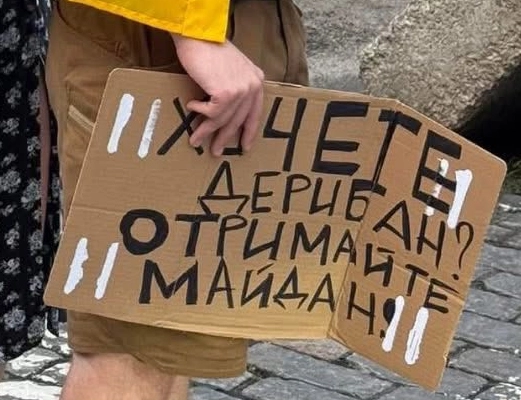 ХОЧЕТЕ
ДЕРИБАН?
ОТРИМАЙТЕ
МАЙДАН!